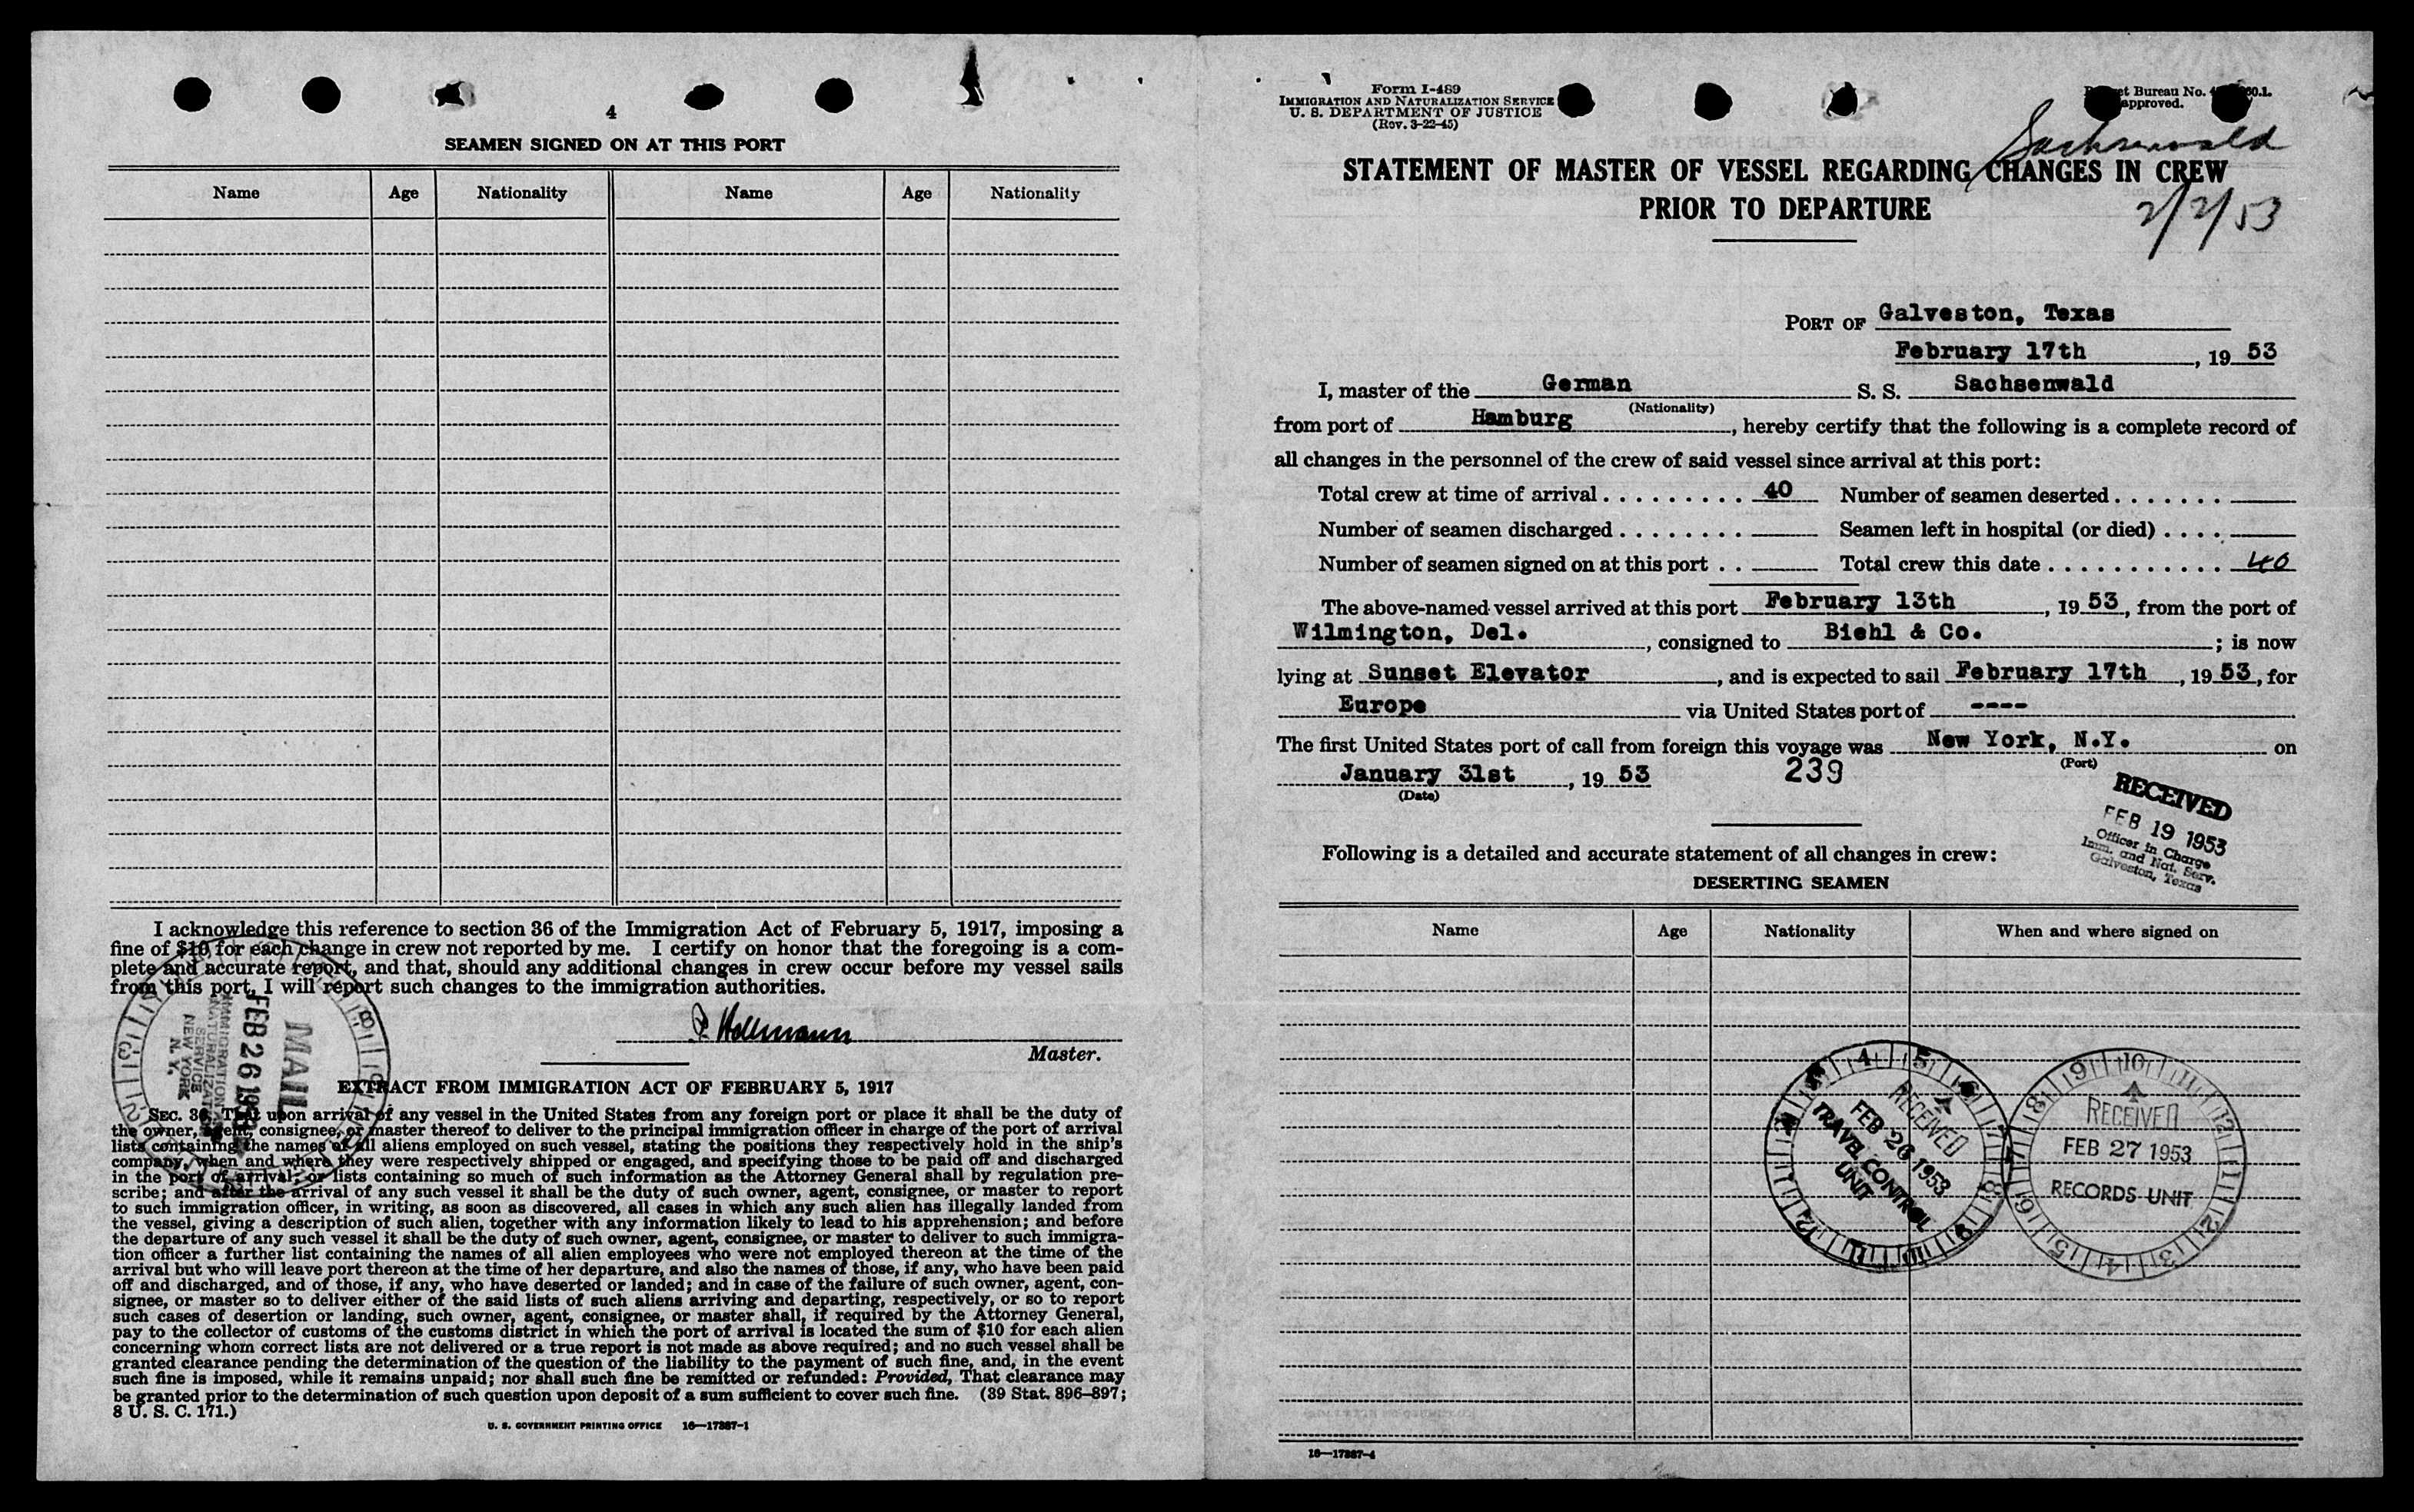 4
SEAMEN SIGNED ON AT THIS PORT
Name Age Nationality Name Age Nationality
I acknowledge this reference to section 36 of the Immigration Act of February 5, 1917, imposing a
fine of $10 for each change in crew not reported by me. I certify on honor that the foregoing is a com-
plete and accurate report, and that, should any additional changes in crew occur before my vessel sails
from this port, I will report such changes to the immigration authorities.
Master.
MAIL
FEB 26 1953
IMMIGRATION AND
NATURALIZATION
SERVICE
NEW YORK
N. Y.
EXTRACT FROM IMMIGRATION ACT OF FEBRUARY 5, 1917
SEC. 36. That upon arrival of any vessel in the United States from any foreign port or place it shall be the duty of
the owner, agent, consignee, or master thereof to deliver to the principal immigration officer in charge of the port of arrival
lists containing the names of all aliens employed on such vessel, stating the positions they respectively hold in the ship's
company, when and where they were respectively shipped or engaged, and specifying those to be paid off and discharged
in the port of arrival; or lists containing so much of such information as the Attorney General shall by regulation pre-
scribe; and after the arrival of any such vessel it shall be the duty of such owner, agent, consignee, or master to report
to such immigration officer, in writing, as soon as discovered, all cases in which any such alien has illegally landed from
the vessel, giving a description of such alien, together with any information likely to lead to his apprehension; and before
the departure of any such vessel it shall be the duty of such owner, agent, consignee, or master to deliver to such immigra-
tion officer a further list containing the names of all alien employees who were not employed thereon at the time of the
arrival but who will leave port thereon at the time of her departure, and also the names of those, if any, who have been paid
off and discharged, and of those, if any, who have deserted or landed; and in case of the failure of such owner, agent, con-
signee, or master so to deliver either of the said lists of such aliens arriving and departing, respectively, or so to report
such cases of desertion or landing, such owner, agent, consignee, or master shall, if required by the Attorney General,
pay to the collector of customs of the customs district in which the port of arrival is located the sum of $10 for each alien
concerning whom correct lists are not delivered or a true report is not made as above required; and no such vessel shall be
granted clearance pending the determination of the question of the liability to the payment of such fine, and, in the event
such fine is imposed, while it remains unpaid; nor shall such fine be remitted or refunded: Provided, That clearance may
be granted prior to the determination of such question upon deposit of a sum sufficient to cover such fine. (39 Stat. 896–897;
8 U. S. C. 171.)
U. S. GOVERNMENT PRINTING OFFICE 16—17887-1
Form I-489
IMMIGRATION AND NATURALIZATION SERVICE
U. S. DEPARTMENT OF JUSTICE
(Rov. 3-22-45)
Bureau No.
approved.
Sachsenwald
STATEMENT OF MASTER OF VESSEL REGARDING CHANGES IN CREW
PRIOR TO DEPARTURE
2/2/53
PORT OF Galveston, Texas
February 17th, 19 53
I, master of the German S. S. Sachsenwald
(Nationality)
from port of Hamburg, hereby certify that the following is a complete record of
all changes in the personnel of the crew of said vessel since arrival at this port:
Total crew at time of arrival . . . . . . . . . 40 Number of seamen deserted . . . . . . .
Number of seamen discharged . . . . . . . . Seamen left in hospital (or died) . . . .
Number of seamen signed on at this port . . Total crew this date . . . . . . . . . . . 40
The above-named vessel arrived at this port February 13th, 19 53, from the port of
Wilmington, Del., consigned to Biehl & Co.; is now
lying at Sunset Elevator, and is expected to sail February 17th, 19 53, for
Europe via United States port of ----
The first United States port of call from foreign this voyage was New York, N.Y. on
(Port)
January 31st, 19 53 239
(Date)
RECEIVED
FEB 19 1953
Officer in Charge
Imm. and Nat. Serv.
Galveston, Texas
Following is a detailed and accurate statement of all changes in crew:
DESERTING SEAMEN
Name Age Nationality When and where signed on
RECEIVED
FEB 26 1953
TRAVEL CONTROL
UNIT
RECEIVED
FEB 27 1953
RECORDS UNIT
16—17887-4